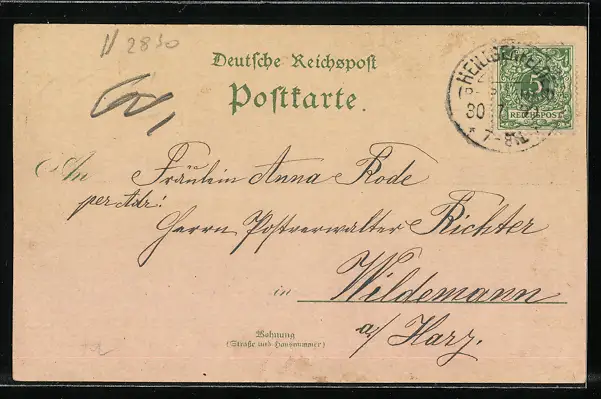 2830
Deutsche Reichspost
Postkarte.
5
REICHSPOST
30 7
7-8N.
An Fräulein Anna Rode
per Adr:
Herrn Postverwalter Richter
in Wildemann
a/ Harz.
Wohnung
(Straße und Hausnummer)